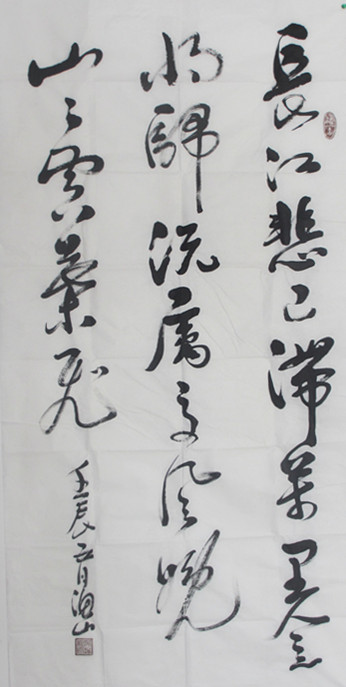 長江悲已滯萬里念
將歸況屬高風晚
山々黃葉飛
壬辰五月山